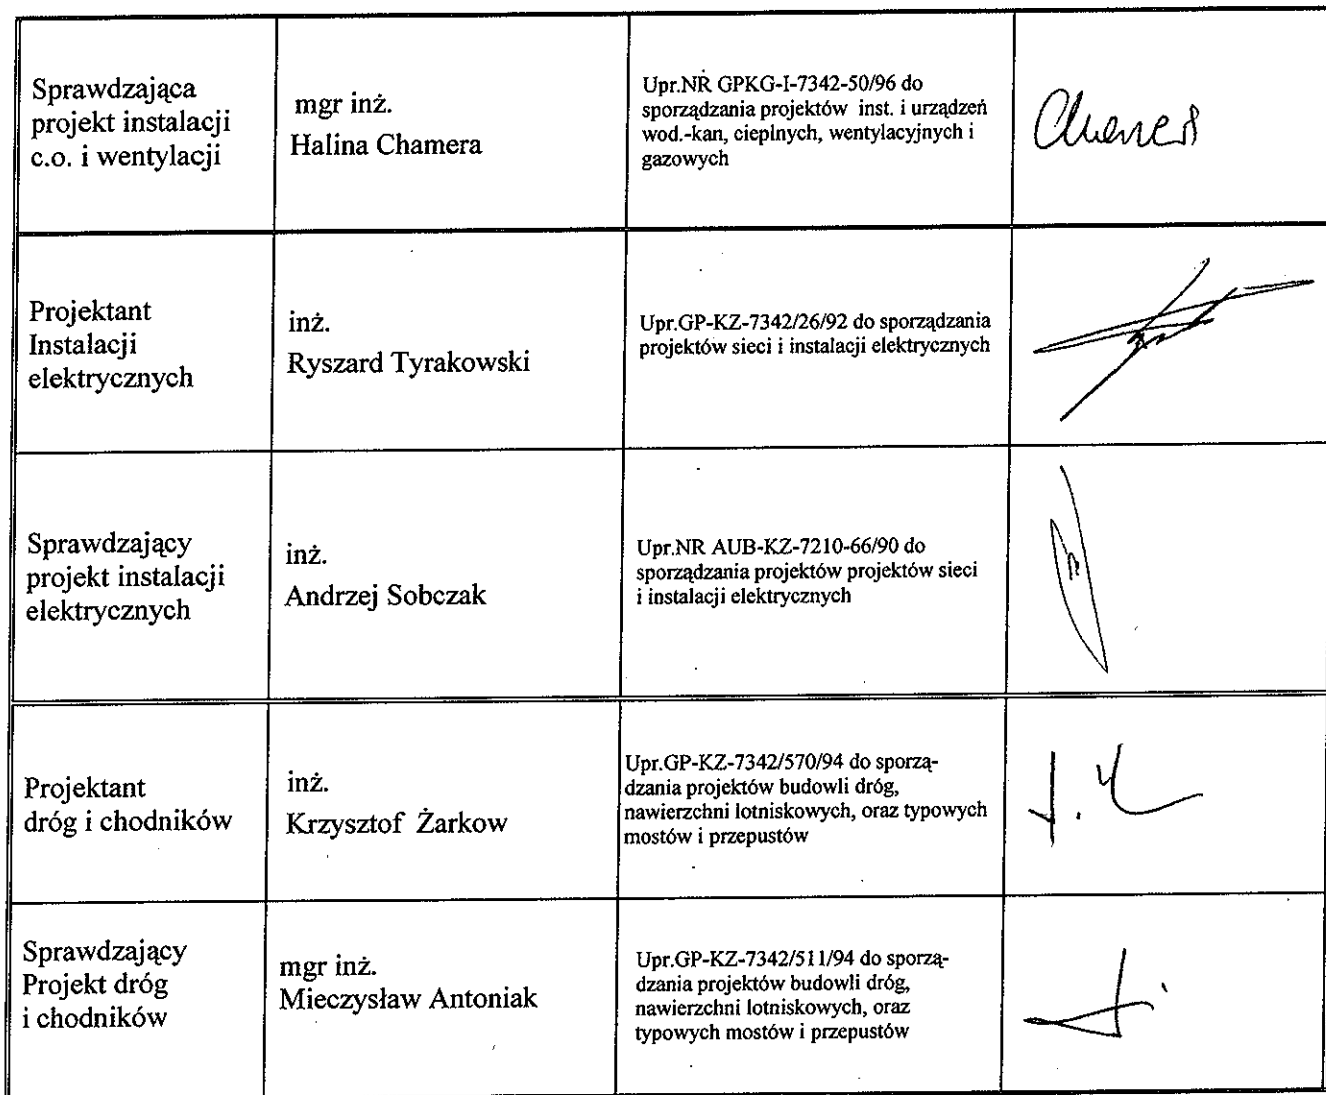 Sprawdzająca
projekt instalacji
c.o. i wentylacji
mgr inż.
Halina Chamera
Upr.NR GPKG-I-7342-50/96 do
sporządzania projektów inst. i urządzeń
wod.-kan, cieplnych, wentylacyjnych i
gazowych
Projektant
Instalacji
elektrycznych
inż.
Ryszard Tyrakowski
Upr.GP-KZ-7342/26/92 do sporządzania
projektów sieci i instalacji elektrycznych
Sprawdzający
projekt instalacji
elektrycznych
inż.
Andrzej Sobczak
Upr.NR AUB-KZ-7210-66/90 do
sporządzania projektów projektów sieci
i instalacji elektrycznych
Projektant
dróg i chodników
inż.
Krzysztof Żarkow
Upr.GP-KZ-7342/570/94 do sporzą-
dzania projektów budowli dróg,
nawierzchni lotniskowych, oraz typowych
mostów i przepustów
Sprawdzający
Projekt dróg
i chodników
mgr inż.
Mieczysław Antoniak
Upr.GP-KZ-7342/511/94 do sporzą-
dzania projektów budowli dróg,
nawierzchni lotniskowych, oraz
typowych mostów i przepustów